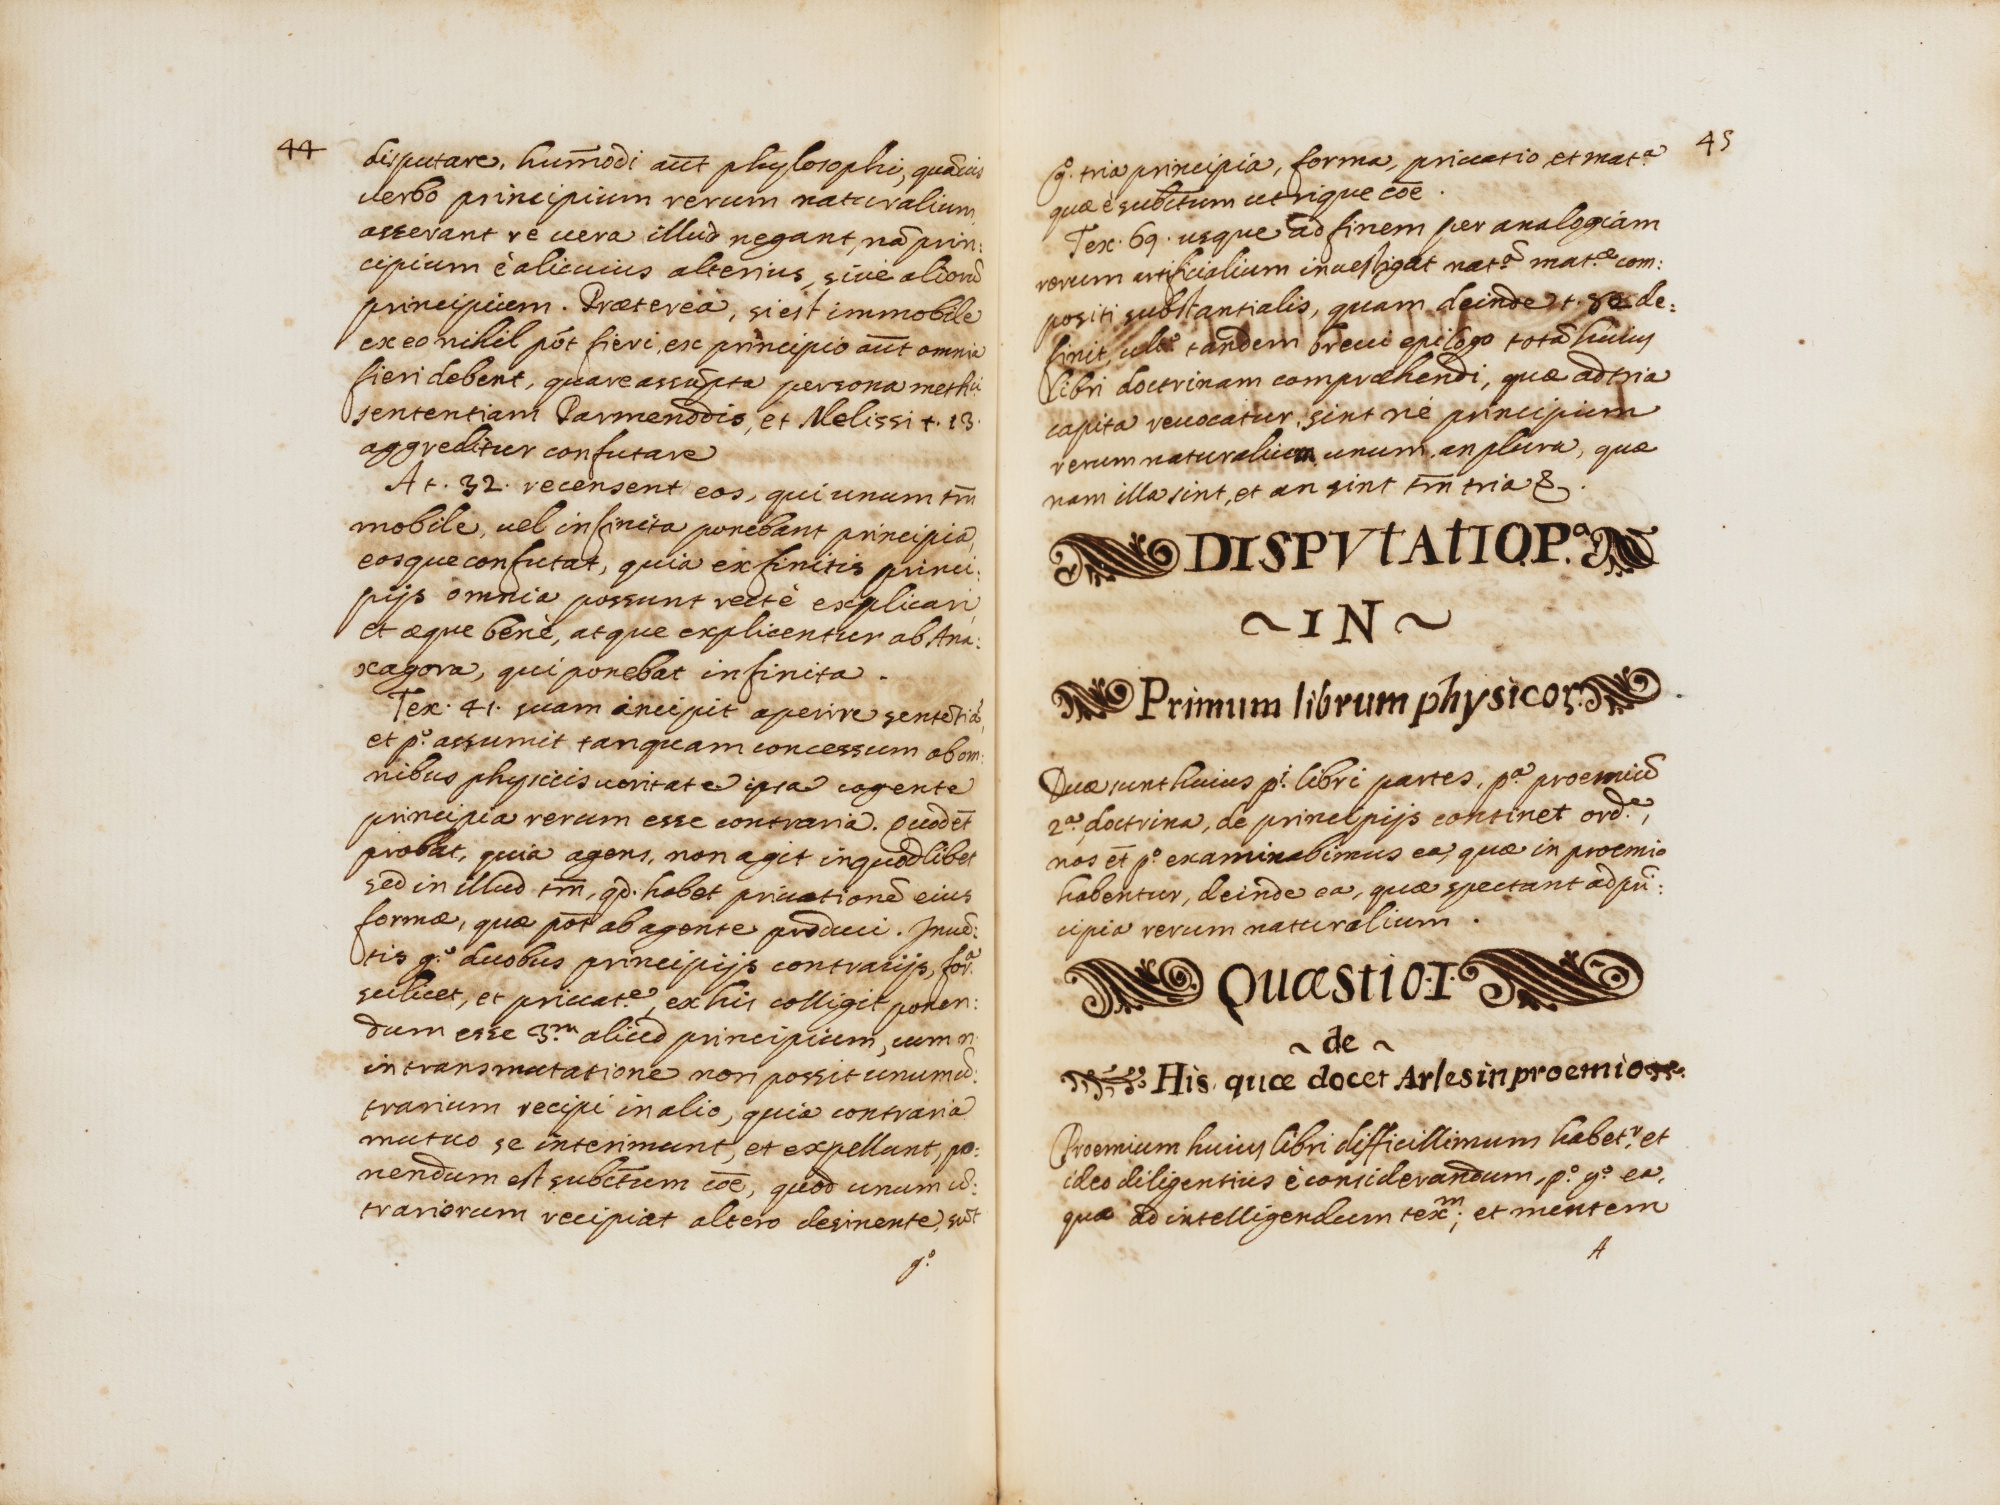 44
disputare. hum̄odi aūt phylosophi, quāuis
uerbo principium rerum naturalium
asserant re uera illud negant, nā prin:
cipium è alicuius alterius, siue aliorū
principium. Præterea, si est immobile
ex eo nihil pōt fieri, ex principio aūt omnia
fieri debent, quare assūpta persona meth:
sententiam Parmenidis, et Melissi t. 13.
aggreditur confutare
At. 32. recensent eos, qui unum tm̄
mobile, uel infinita ponebant principia,
eosque confutat, quia ex finitis princi:
pijs omnia possunt rectè explicari,
et æque benè, atque explicentur ab Ana:
xagora, qui ponebat infinita.
Tex. 41. suam incipit aperire sentētiā,
et p.º assumit tanquam concessum ab om:
nibus physicis ueritate ipsa cogente
principia rerum esse contraria. Quod et̄
probat, quia agens, non agit in quodlibet
sed in illud tm̄, qd. habet priuationē eius
formæ, quæ pōt ab agente produci. Inuē:
tis g.º duobus principijs contrarijs, for.ª
scilicet, et priuat.e, ex his colligit ponen:
dum esse 3.m aliud principium, cum n
in transmutatione non possit unum cō:
trarium recipi in alio, quia contraria
mutuo se interimunt, et expellunt, po:
nendum est subc̄tum cōe, quod unum cō:
trariorum recipiat altero desinente, sūt
g.º
45
g.º tria principia, forma, priuatio, et mat.ª
quæ è subc̄tum utrique cōe.
Tex. 69. usque ad finem per analogiam
rerum artificialium inuestigat nat.ā mat.æ com:
positi substantialis, quam deinde t. 80 de:
finit, ult.º tandem breui epilogo totā huius
libri doctrinam compræhendi, quæ ad tria
capita reuocatur, sint ne principium
rerum naturalium unum, an plura, quæ
nam illa sint, et an sint tm̄ tria &.
DISPVtAtIO P.ª
~ IN ~
Primum librum physicoꝝ.
Duæ sunt huius p.i libri partes, p.ª proemiū
2.ª, doctrina, de principijs continet ord.e,
nos et̄ p.º examinabimus ea, quæ in proemio
habentur, deinde ea, quæ spectant ad pri̅:
cipia rerum naturalium.
Quæstio.I.
~ de ~
His, quæ docet Arles in proemio
Proemium huius libri difficillimum habet.r et
ideo diligentius è considerandum, p.º g.º ea,
quæ ad intelligendum tex.m; et mentem
A